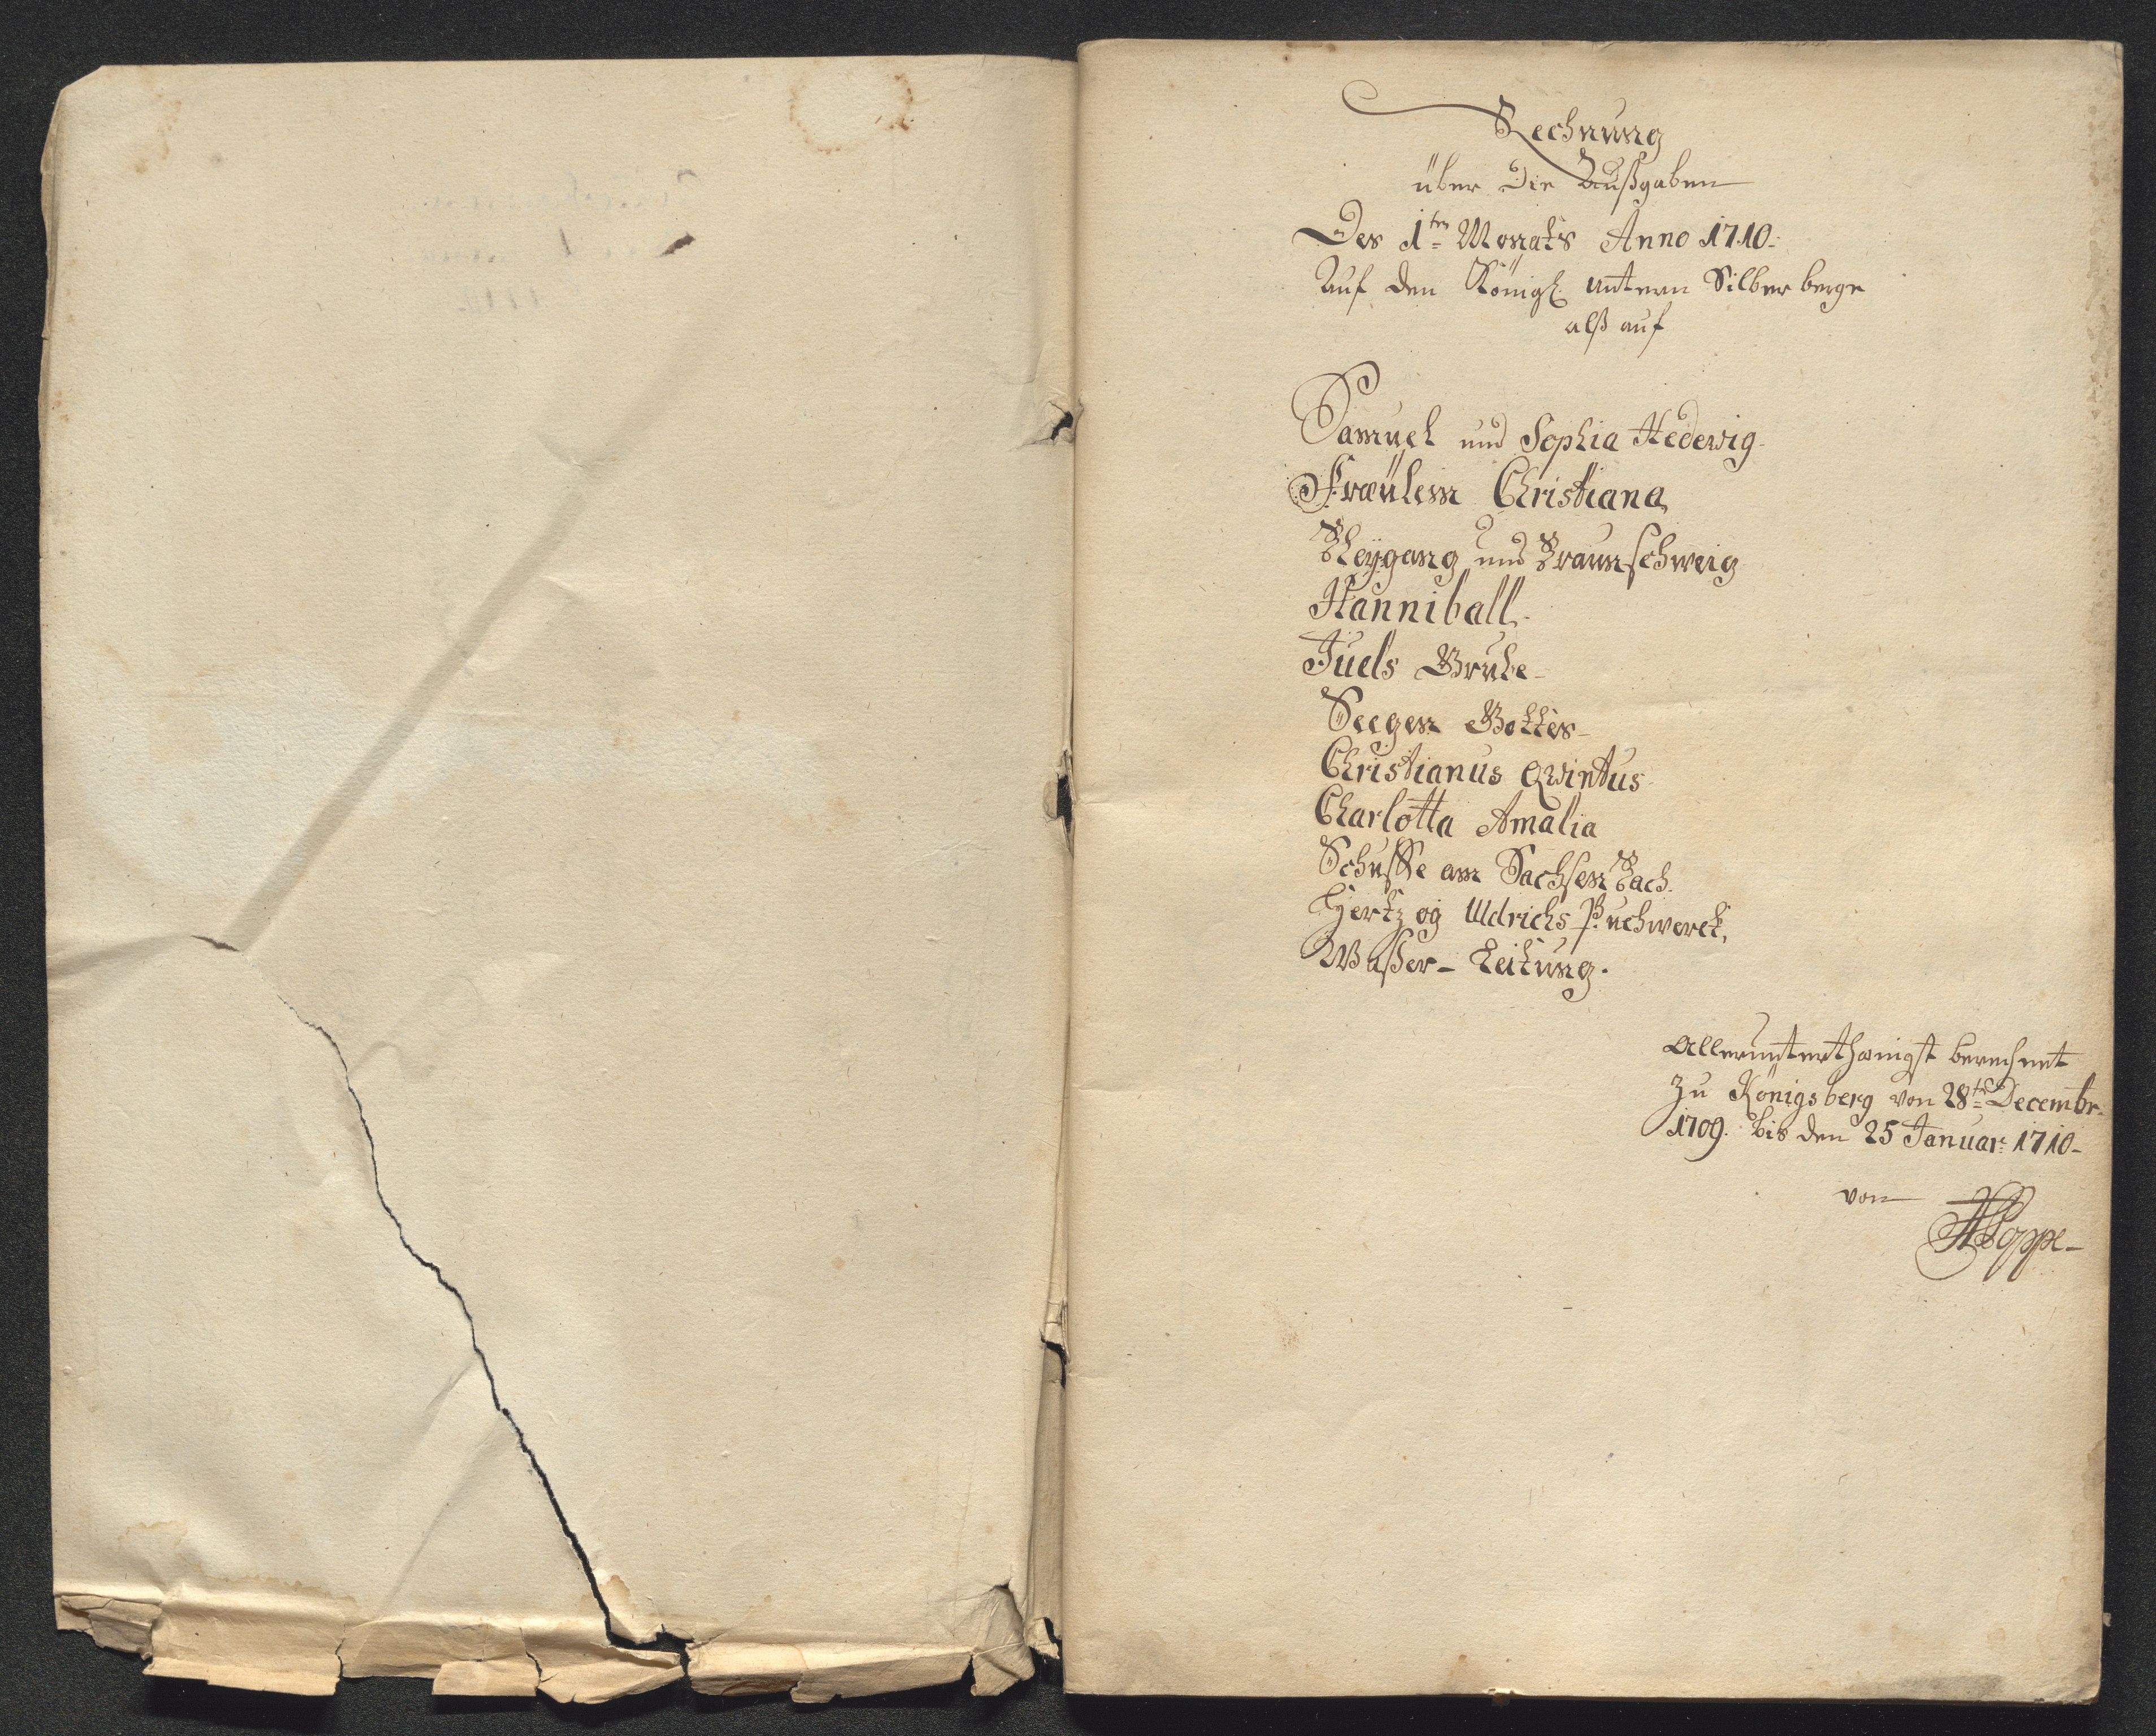 Rechnung
über Die Außgaben
Des 1ten Monats Anno 1710.
Auf den Königl. Untern Silberberge
alß auf
Samuel und Sophia Hedewig
Fräülein Christiana
Bleygang und Braunschweig
Hanniball.
Juels Grube
Seegen Gottes
Christianus Qvintus
Charlotta Amalia
Schusse am Sachsen Bach.
Hertzog Uldrichs Puchwerck,
Waßer-Leitung.
Allerunterthänigst berechnet
Zu Königsberg von 28ten Decembr.
1709. bis den 25 Januar: 1710
von
Poppe